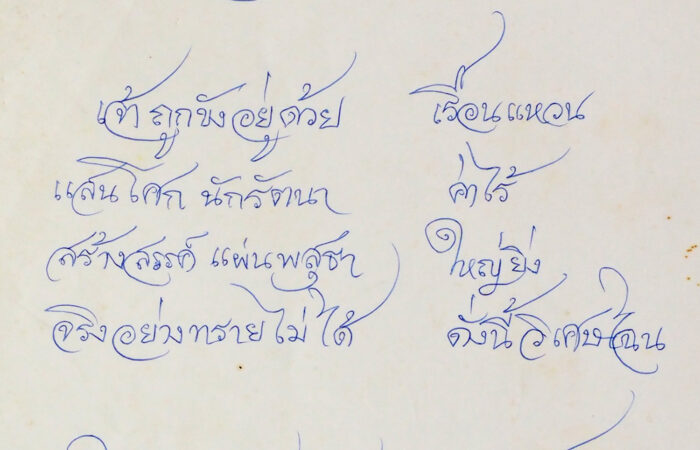 เจ้าถูกขังอยู่ด้วย เรือนแหวน
แสนโศก นักรัตนา ค่าไร้
สร้างสรรค์ แผ่นพสุธา ใหญ่ยิ่ง
จริงอย่างทรายไม่ได้ ดั่งนี้วิเศษไฉน